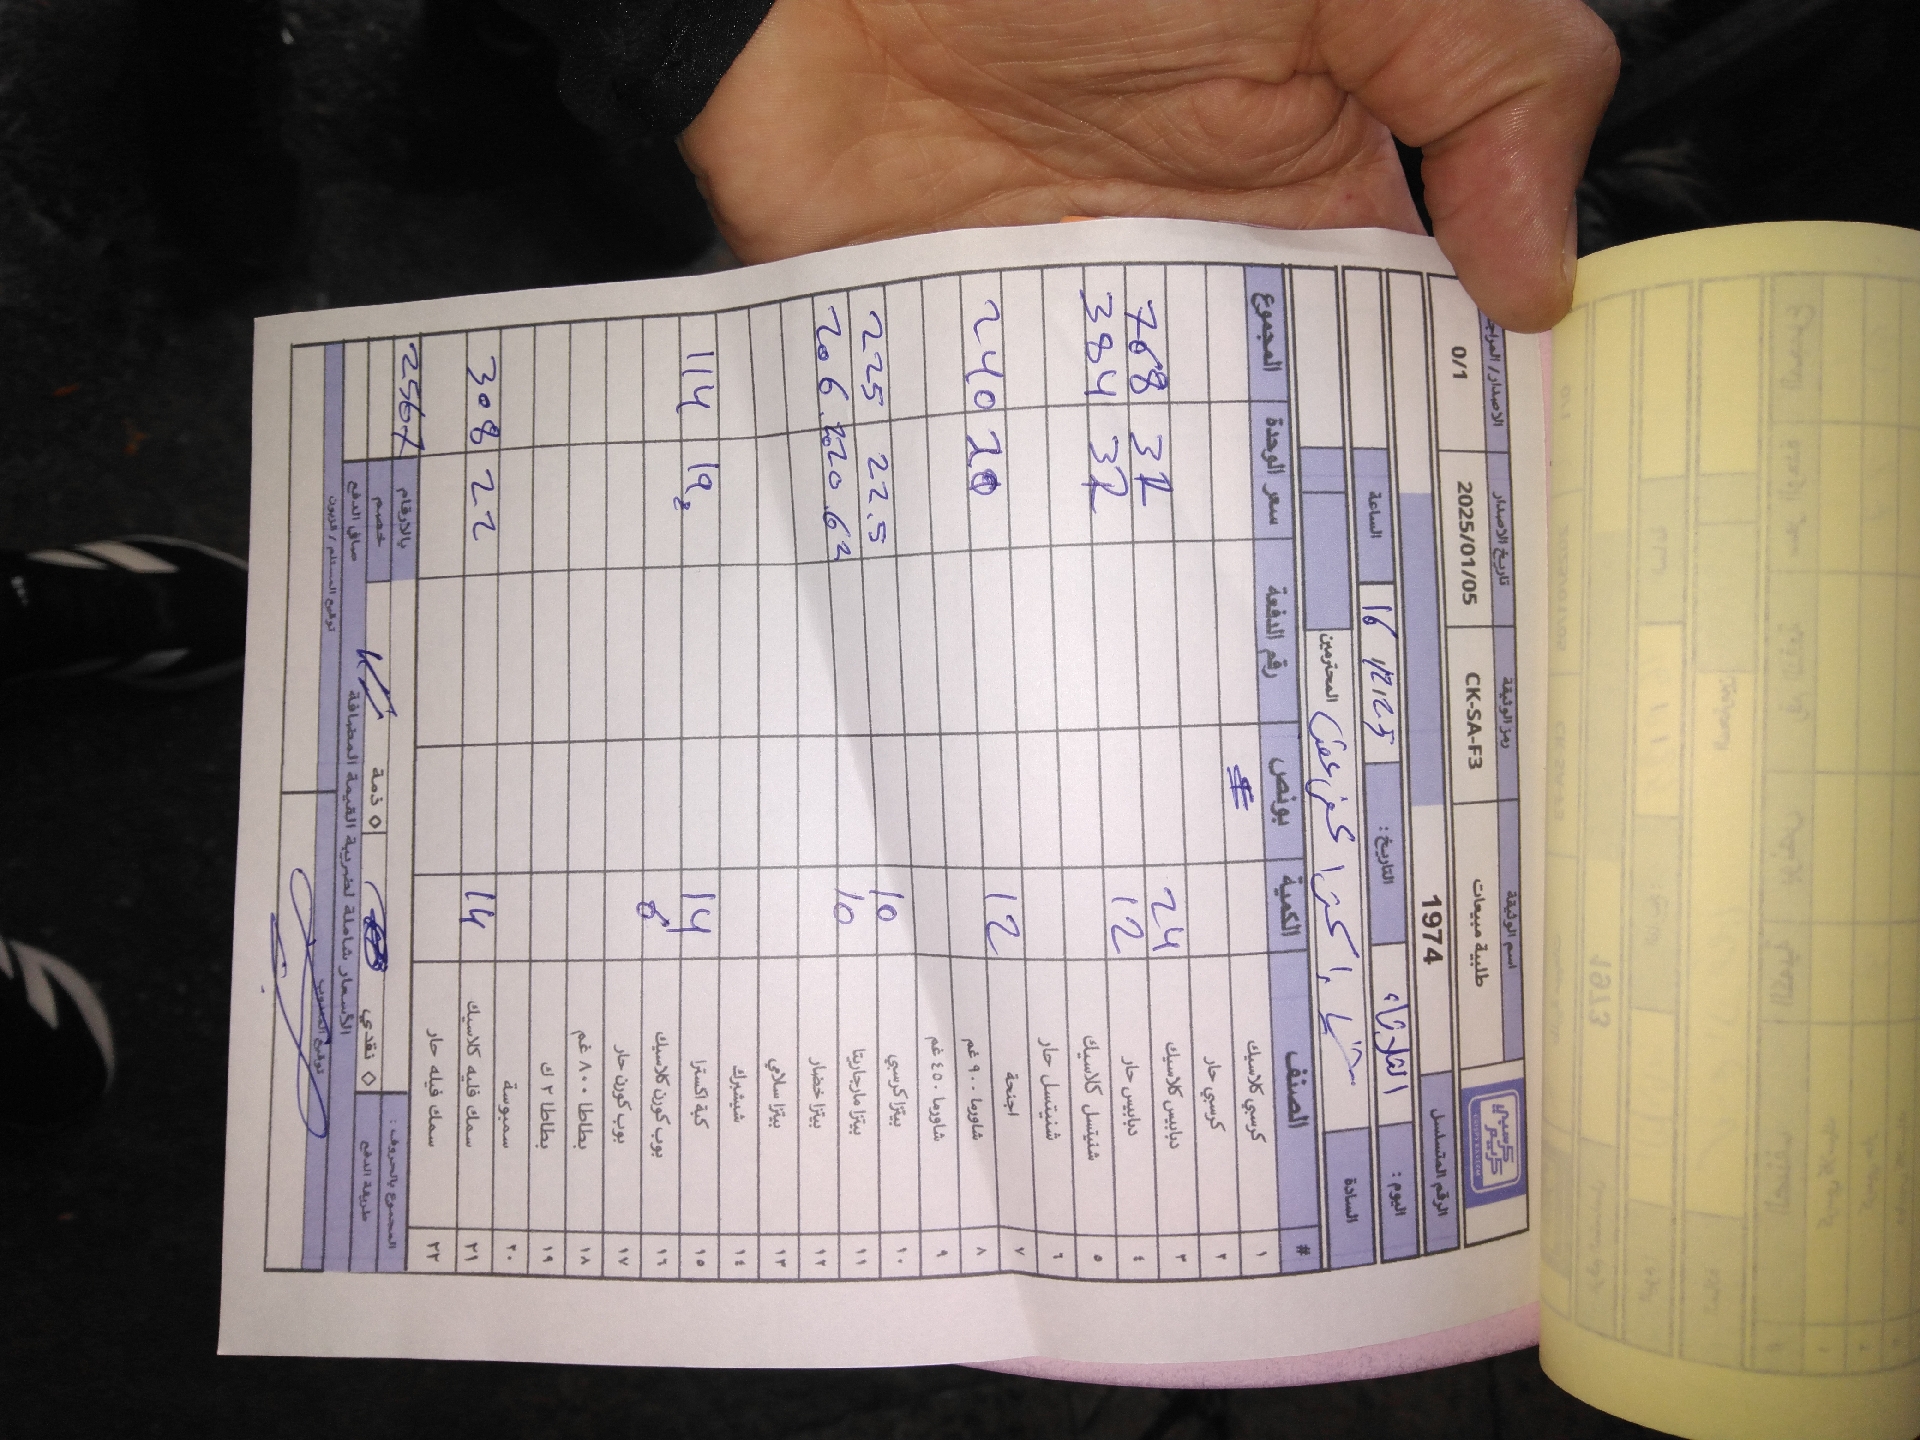 كرسبي كريم
اسم الوثيقة رمز الوثيقة تاريخ الاصدار الاصدار / المراجـ
طلبية مبيعات CK-SA-F3 2025/01/05 0/1
الرقم المتسلسل 1974
اليوم : الثلاثاء التاريخ: 16/12/25 الساعة
السادة المحترمين
# الصنف الكمية بونص رقم الدفعة سعر الوحدة المجموع
١ كرسبي كلاسيك
٢ كرسبي حار
٣ دبابيس كلاسيك 24 32 768
٤ دبابيس حار 12 32 384
٥ شنيتسل كلاسيك
٦ شنيتسل حار
٧ اجنحة 12 20 240
٨ شاورما ٩٠٠ غم
٩ شاورما ٤٥٠ غم
١٠ بيتزا كرسبي 10 22.5 225
١١ بيتزا مارجاريتا 10 20.62 206.2
١٢ بيتزا خضار
١٣ بيتزا سلامي
١٤ شيشبرك
١٥ كبة اكسترا 14
١٦ بوب كورن كلاسيك 6 19 114
١٧ بوب كورن حار
١٨ بطاطا ٨٠٠ غم
١٩ بطاطا ٢ ك
٢٠ سمبوسة
٢١ سمك فليه كلاسيك 14 22 308
٢٢ سمك فيله حار
المجموع بالحروف : بالارقام 2567
طريقة الدفع ◇ نقدي ◇ ذمة خصم
الأسعار شاملة لضريبة القيمة المضافة صافي الدفع
توقيع المندوب توقيع المستلم / الزبون
1973